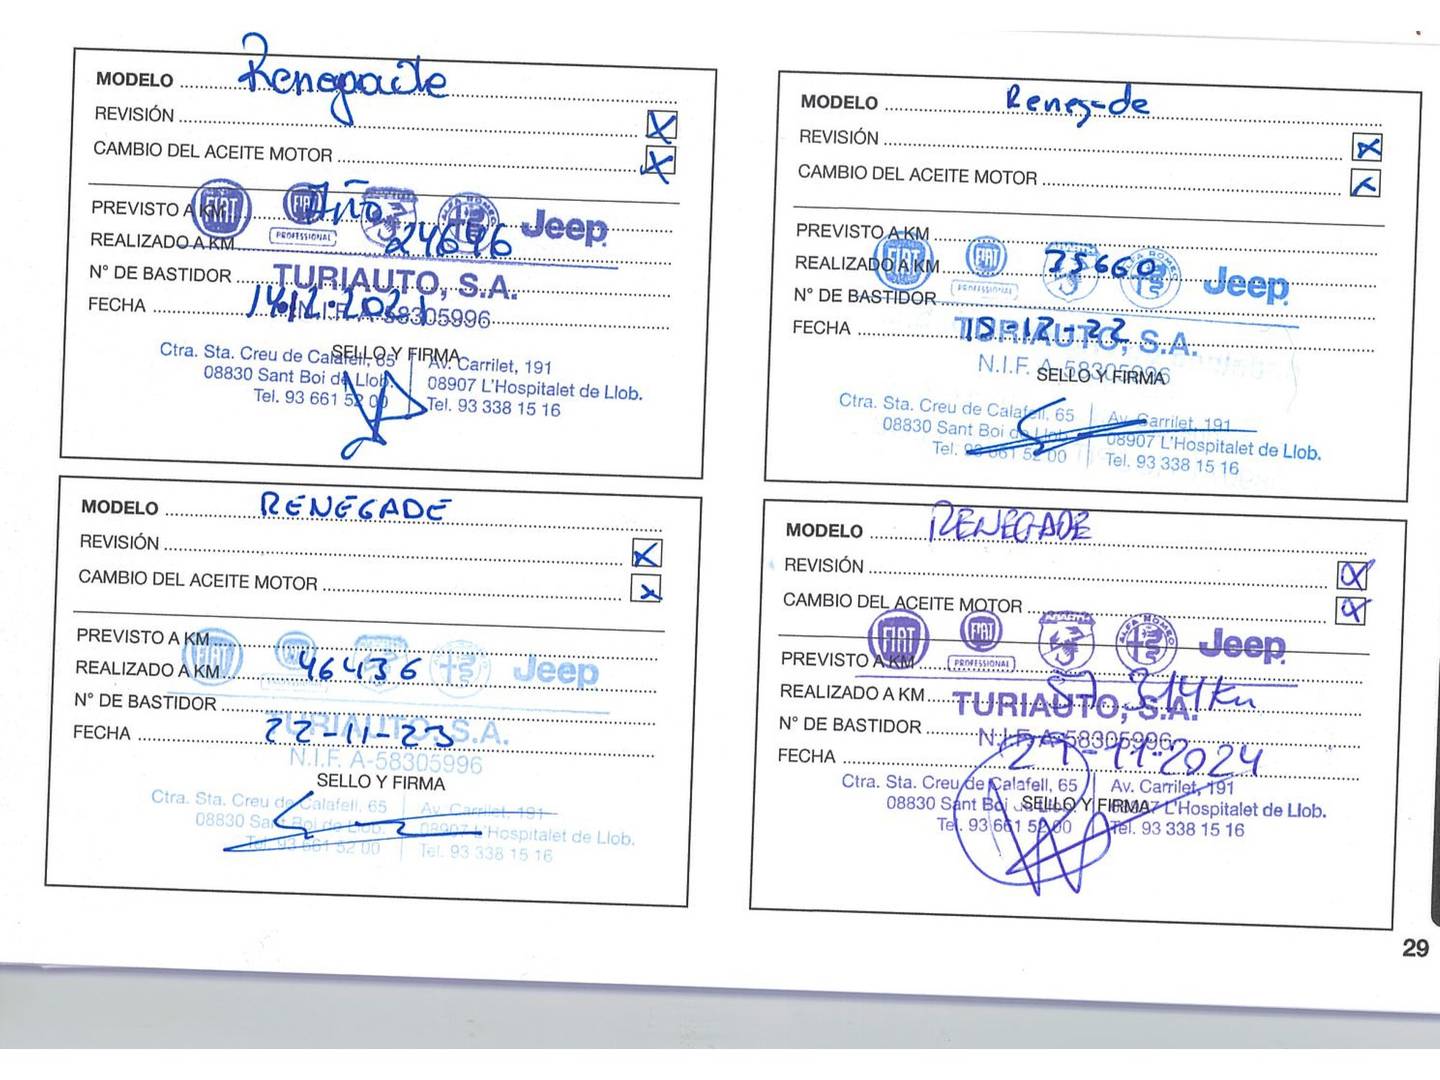 MODELO Renegade
REVISIÓN X
CAMBIO DEL ACEITE MOTOR X
PREVISTO A KM Año
REALIZADO A KM 24646
N° DE BASTIDOR
FECHA 14-12-2021
SELLO Y FIRMA
FIAT FIAT PROFESSIONAL ABARTH ALFA ROMEO Jeep
TURIAUTO, S.A.
N.I.F. A-58305996
Ctra. Sta. Creu de Calafell, 65 Av. Carrilet, 191
08830 Sant Boi de Llob. 08907 L'Hospitalet de Llob.
Tel. 93 661 52 00 Tel. 93 338 15 16
MODELO Renegade
REVISIÓN X
CAMBIO DEL ACEITE MOTOR X
PREVISTO A KM
REALIZADO A KM 35660
N° DE BASTIDOR
FECHA 15-12-22
SELLO Y FIRMA
FIAT FIAT PROFESSIONAL ALFA ROMEO Jeep
TURIAUTO, S.A.
N.I.F. A-58305996
Ctra. Sta. Creu de Calafell, 65 Av. Carrilet, 191
08830 Sant Boi de Llob. 08907 L'Hospitalet de Llob.
Tel. 93 661 52 00 Tel. 93 338 15 16
MODELO RENEGADE
REVISIÓN X
CAMBIO DEL ACEITE MOTOR X
PREVISTO A KM
REALIZADO A KM 46436
N° DE BASTIDOR
FECHA 22-11-23
SELLO Y FIRMA
FIAT FIAT Jeep
TURIAUTO, S.A.
N.I.F. A-58305996
Ctra. Sta. Creu de Calafell, 65 Av. Carrilet, 191
08830 Sant Boi de Llob. 08907 L'Hospitalet de Llob.
Tel. 93 661 52 00 Tel. 93 338 15 16
MODELO RENEGADE
REVISIÓN X
CAMBIO DEL ACEITE MOTOR X
PREVISTO A KM
REALIZADO A KM 57.314Km
N° DE BASTIDOR
FECHA -11-2024
SELLO Y FIRMA
FIAT FIAT PROFESSIONAL ABARTH ALFA ROMEO Jeep
TURIAUTO, S.A.
N.I.F. A-58305996
Ctra. Sta. Creu de Calafell, 65 Av. Carrilet, 191
08830 Sant Boi de Llob. 08907 L'Hospitalet de Llob.
Tel. 93 661 52 00 Tel. 93 338 15 16
29